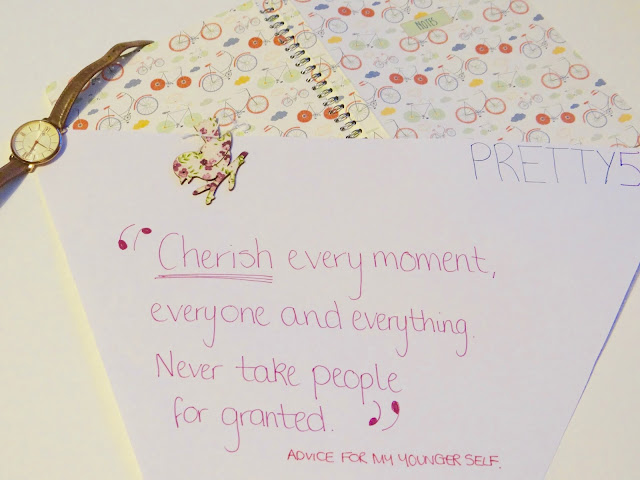 NOTES
PRETTY5
“Cherish every moment,
everyone and everything.
Never take people
for granted.”
ADVICE FOR MY YOUNGER SELF.